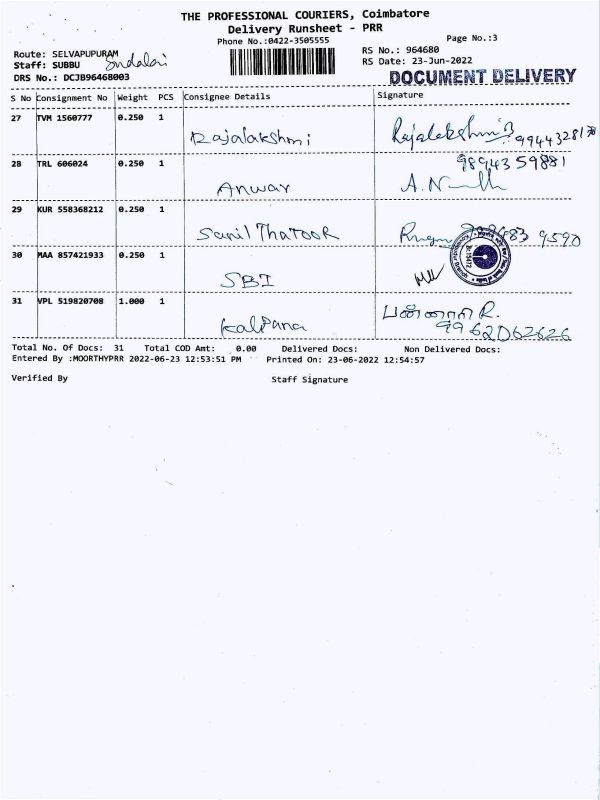 THE PROFESSIONAL COURIERS, Coimbatore
Delivery Runsheet - PRR
Phone No.:0422-3505555
Page No.:3
Route: SELVAPUPURAM
RS No.: 964680
Staff: SUBBU
RS Date: 23-Jun-2022
DRS No.: DCJB96468003
DOCUMENT DELIVERY
S No Consignment No Weight PCS Consignee Details Signature
27 TVM 1560777 0.250 1
Rajalakshmi Rajalakshmi
28 TRL 606024 0.250 1 9894359881
Anwar
29 KUR 558368212 0.250 1
Sunil Thatoor
30 MAA 857421933 0.250 1
SBI
31 VPL 519820708 1.000 1
Kalpana 9962062626
Total No. Of Docs: 31 Total COD Amt: 0.00 Delivered Docs: Non Delivered Docs:
Entered By :MOORTHYPRR 2022-06-23 12:53:51 PM Printed On: 23-06-2022 12:54:57
Verified By Staff Signature